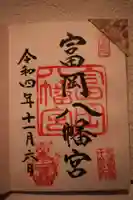 富岡八幡宮
令和四年十一月六日